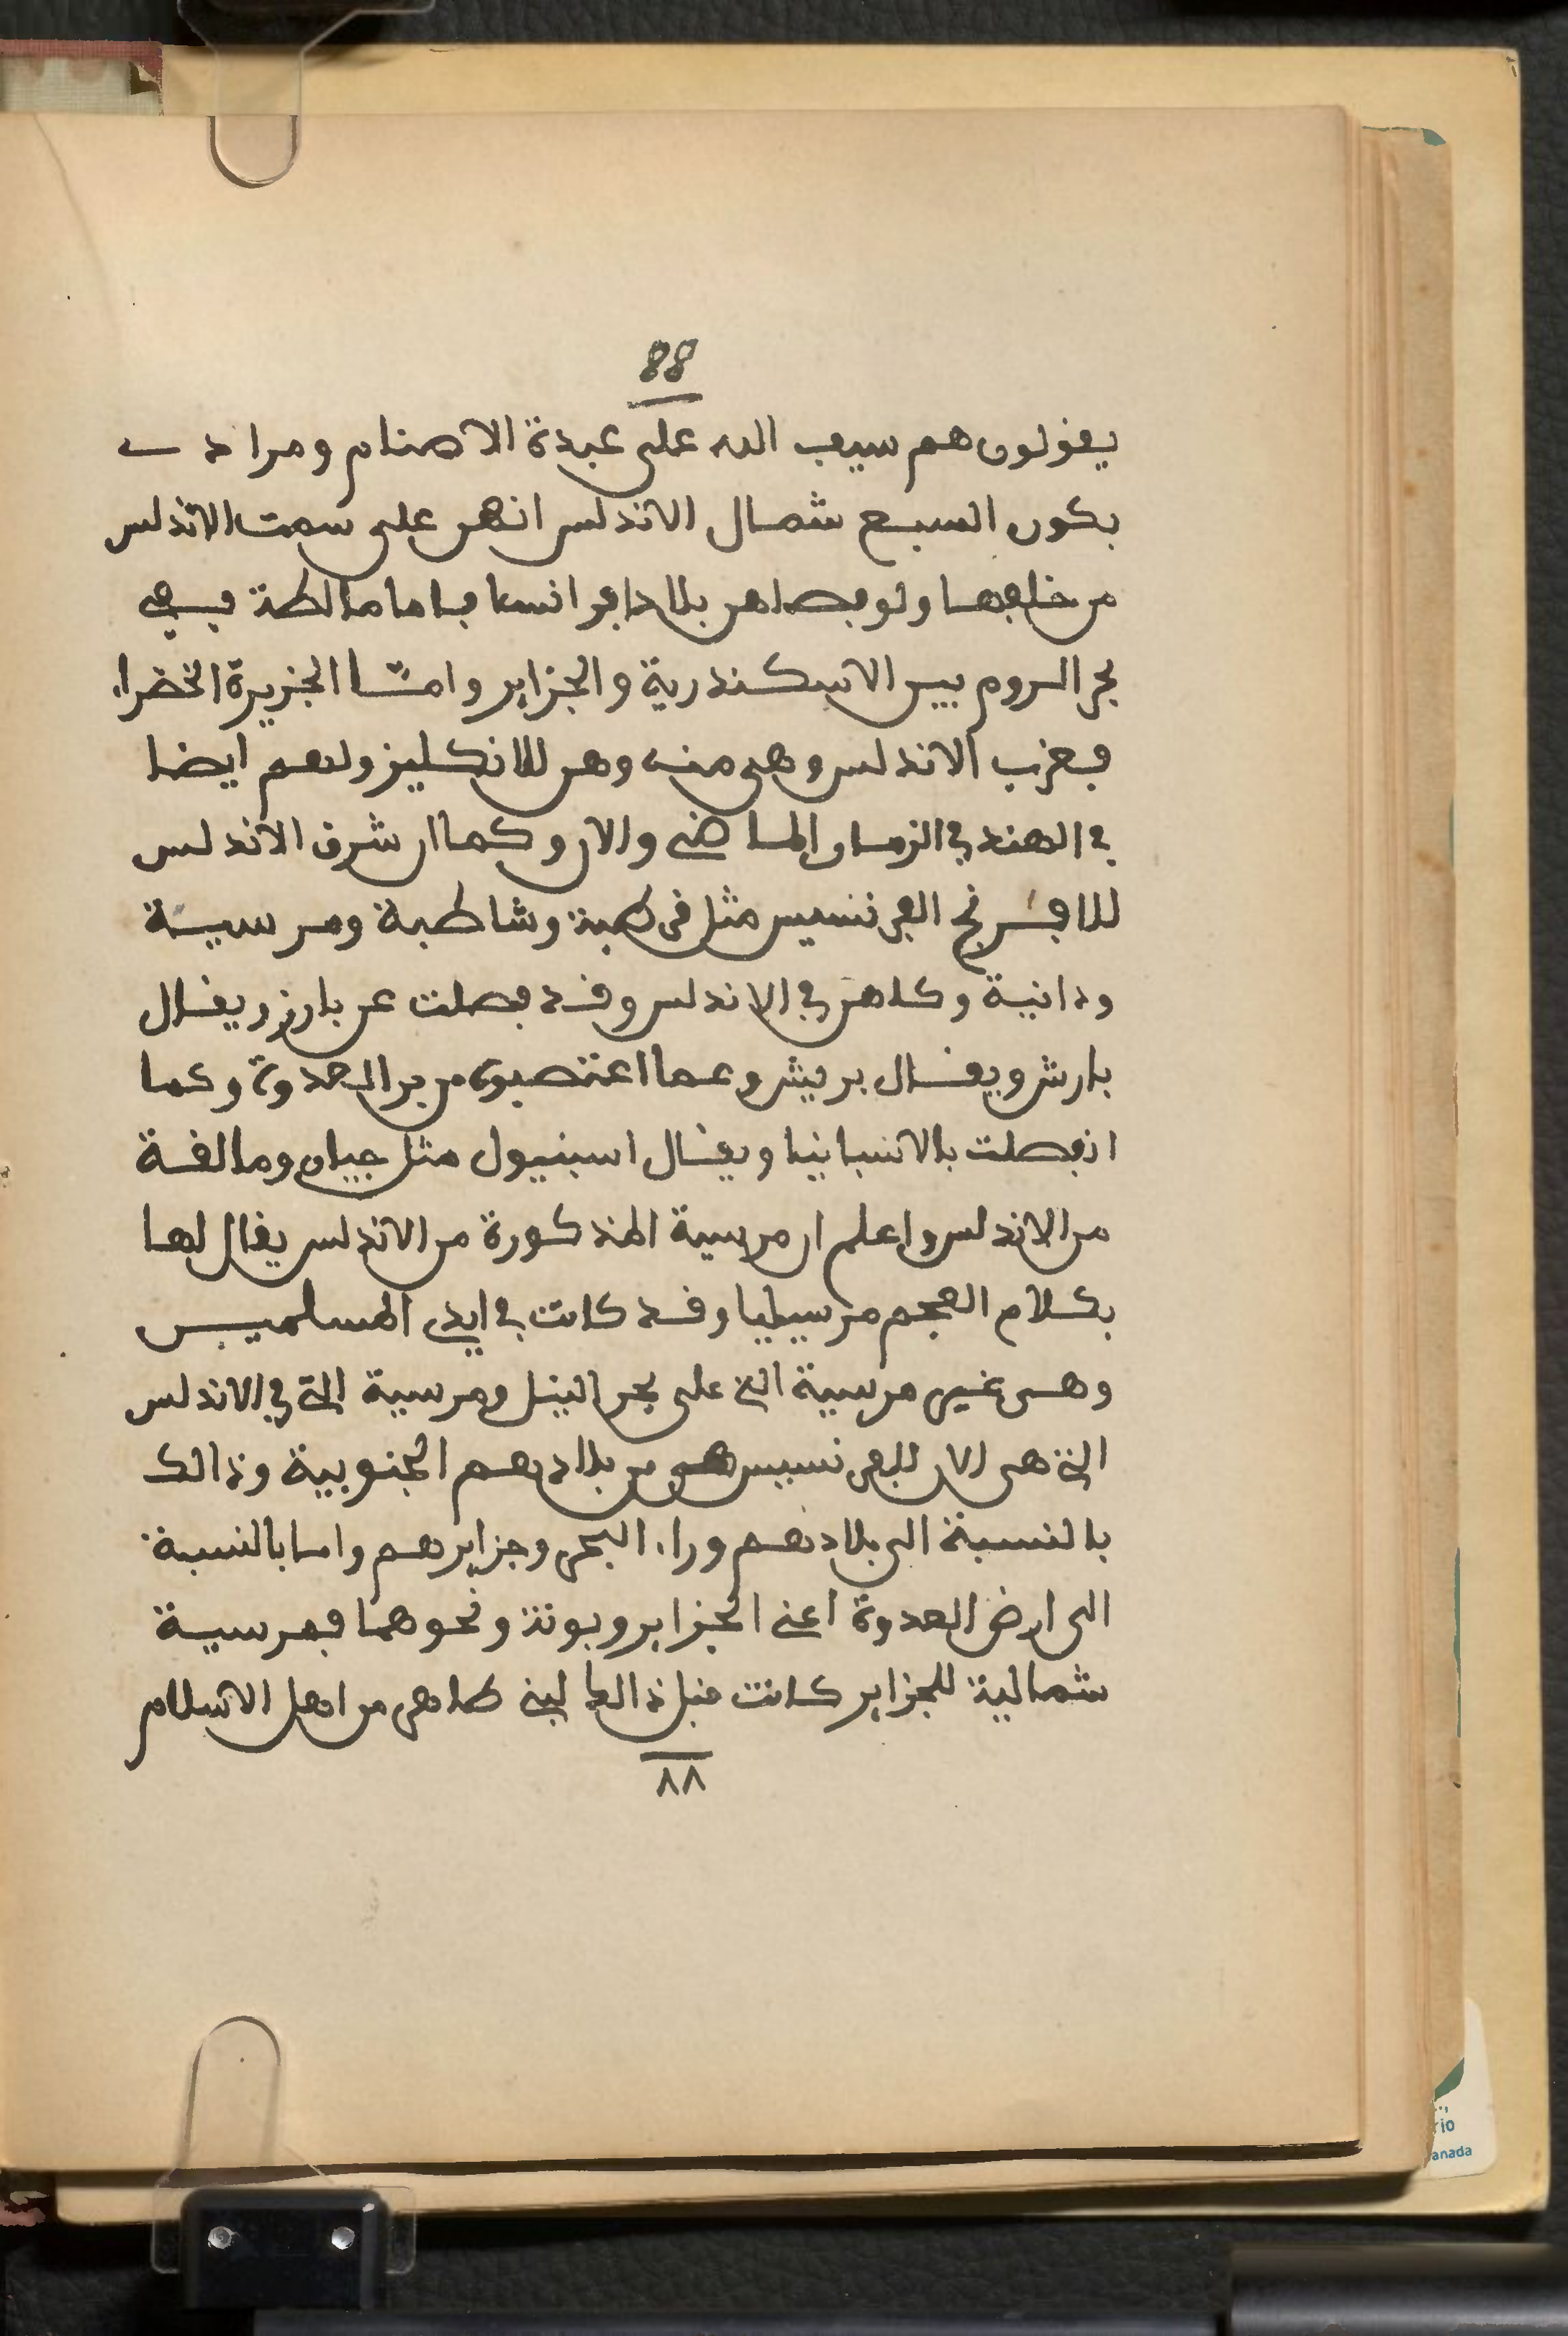 88
يقولون هم سيف الله على عبدة الاصنام ومرادى
بكون السبع شمال الاندلس انهن على سمت الاندلس
من خلفها ولو فصلهن بلاد افرانسا فاما مالطة ففى
بحر الروم بين الاسكندرية والجزاير وامّا الجزيرة الخضراء
فغرب الاندلس وهى منه وهى للانكليز ولهم ايضا
في الهند في الزمان الماضى والان وكما ان شرق الاندلس
للافرنج الفرنسيس مثل قرطبة وشاطبة ومرسية
ودانية وكلهن في الاندلس وقد فصلت عن بارز ويقال
بارش ويقال بريش وعما اغتصبوه من بر العدوة وكما
انفصلت بالانسبانيا ويقال اسبنيول مثل جيان ومالقة
من الاندلس واعلم ان مرسية المذكورة من الاندلس يقال لها
بكلام العجم مرسيليا وقد كانت في ايدى المسلمين
وهى غير مرسية التى على بحر النيل ومرسية التى في الاندلس
التى هى الان للفرنسيس هى من بلادهم الجنوبية وذالك
بالنسبة الى بلادهم وراء البحر وجزايرهم واما بالنسبة
الى ارض العدوة اعنى الجزاير وبونة ونحوهما فمرسية
شمالية للجزاير كانت قبل ذالك لبنى طاهر من اهل الاسلام
٨٨